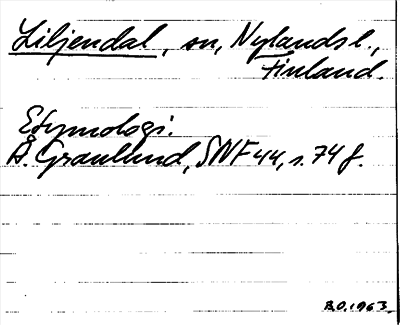 Liljendal, sn, Nylands l.,
Finland.
Etymologi.
Å. Granlund, SNF 44, s. 74 f.
B.O. 1963